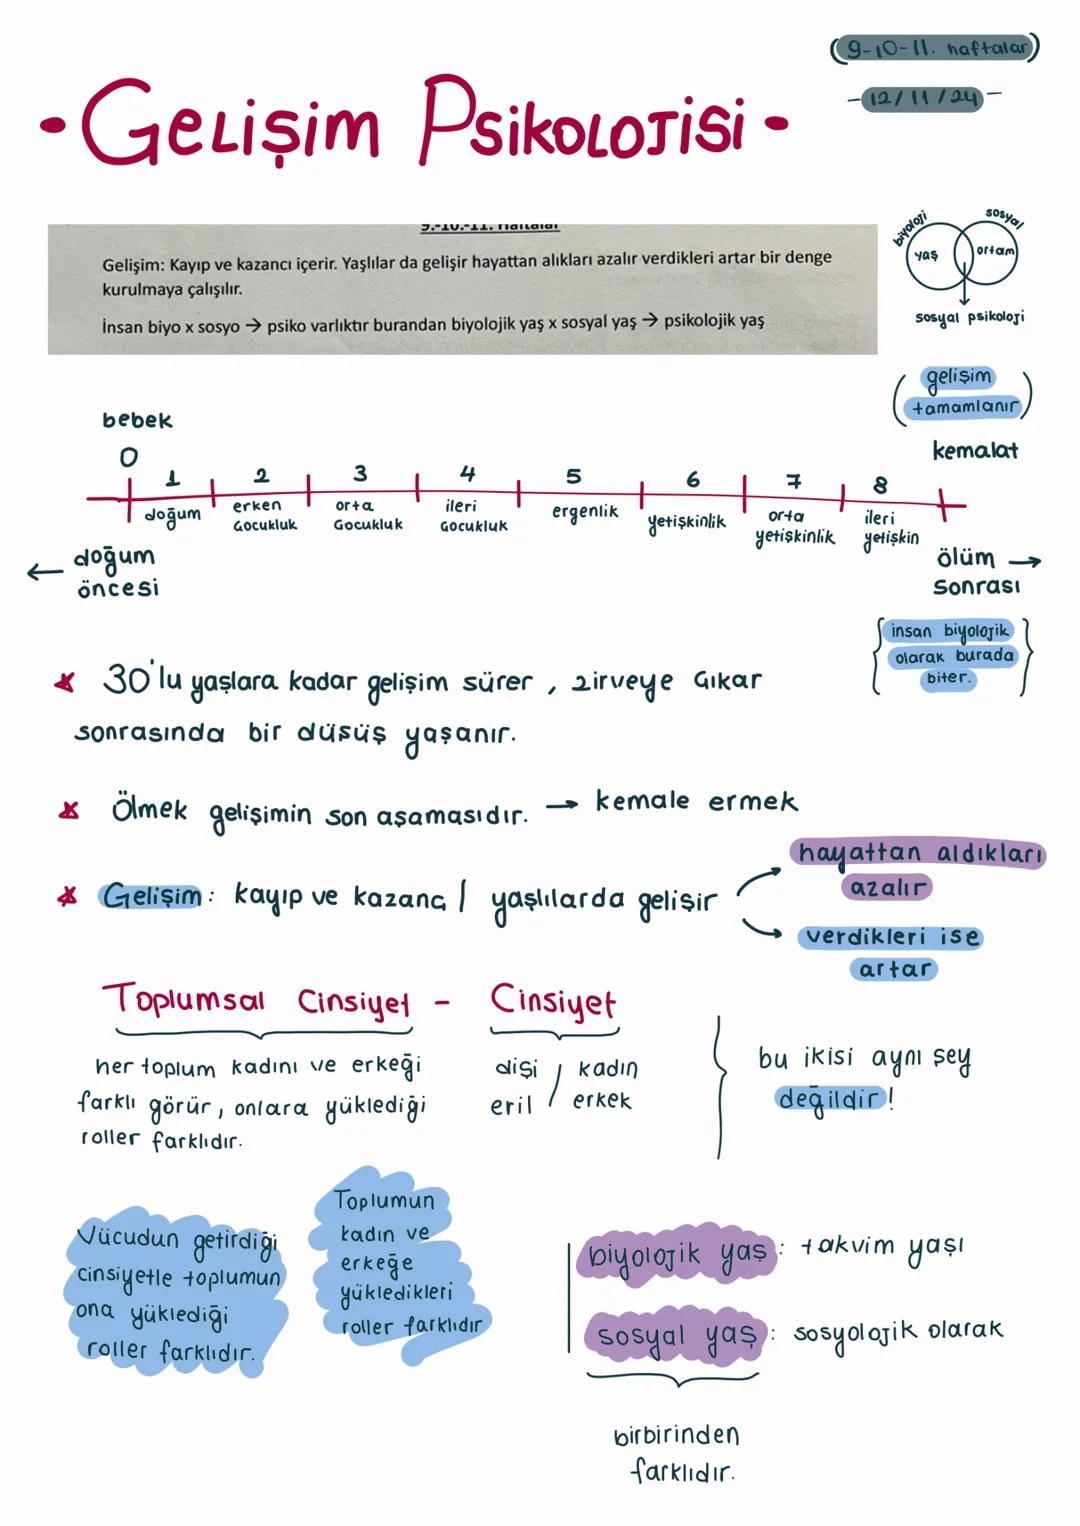 (9-10-11. haftalar)
- 12/11/24 -
• Gelişim Psikolojisi •
9.-10.-11. Haftalar
Gelişim: Kayıp ve kazancı içerir. Yaşlılar da gelişir hayattan alıkları azalır verdikleri artar bir denge
kurulmaya çalışılır.
İnsan biyo x sosyo → psiko varlıktır burandan biyolojik yaş x sosyal yaş → psikolojik yaş
biyoloji
sosyal
yaş
ortam
sosyal psikoloji
(gelişim
tamamlanır)
kemalat
bebek
0
1 2 3 4 5 6 7 8
doğum
erken
çocukluk
orta
çocukluk
ileri
çocukluk
ergenlik
yetişkinlik
orta
yetişkinlik
ileri
yetişkin
← doğum
öncesi
ölüm →
sonrası
{insan biyolojik
olarak burada
biter.}
30'lu yaşlara kadar gelişim sürer, zirveye çıkar
sonrasında bir düşüş yaşanır.
Ölmek gelişimin son aşamasıdır. → kemale ermek
Gelişim: kayıp ve kazanç / yaşlılarda gelişir
hayattan aldıkları
azalır
verdikleri ise
artar
Toplumsal Cinsiyet - Cinsiyet
her toplum kadını ve erkeği
farklı görür, onlara yüklediği
roller farklıdır.
dişi / kadın
eril / erkek
bu ikisi aynı şey
değildir!
Vücudun getirdiği
cinsiyetle toplumun
ona yüklediği
roller farklıdır.
Toplumun
kadın ve
erkeğe
yükledikleri
roller farklıdır
biyolojik yaş: takvim yaşı
sosyal yaş: sosyolojik olarak
birbirinden
farklıdır.